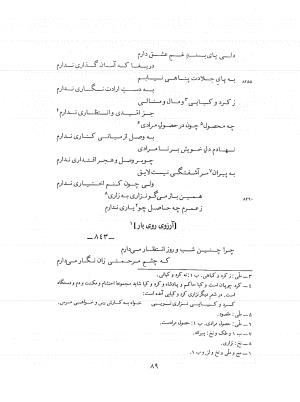 دلی پای‌بند غم عشق دارم
دریغا که آسان گذاری ندارم
۸۲۵۵ به پای جلادت پناهی نیابم
به دست ارادت نگاری ندارم
ز کرد و کیایی ۳ و مال و منالی
جز امّیدی و انتظاری ندارم ۴
چه محصول ۵ چون در حصول مرادی ۶
به وصل از میانی کناری ندارم
نهادم دل خویش بر نامرادی
چو بر وصل و هجر اقتداری ندارم
به پیران ۷ سر آشفتگی نیست لایق
ولی چون کنم اختیاری ندارم
۸۲۶۰ همین باز می‌گو نزاری به زاری ۸
ز عمرم چه حاصل چو ۹ یاری ندارم
[آرزوی روی یار] ۱
ــ ۸۴۳ ــ
چرا چنین شب و روز انتظار می‌دارم
که چشم مرحمتی زان نگار می‌دارم
۳ ــ ملّی: ز کرد و کیاهی. ب ۱: نه کرد و کیایی.
۴ ــ کرد چوپان است و کیا حاکم و پادشاه و کرد و کیا شاید مجموعا احتشام و مکنت و دم و دستگاه است. در شعر دیگر نزاری کرد و کیایی آمده است:
کرد و کیایی نزاری تویی
۵ ــ ملّی: مقصود.
۶ ــ ملّی: حصول مرادی. ب ۱: حصول مرادست.
۷ ــ ب ۱ و فلک و نخ: پیرانه.
۸ ــ نخ: نزاری.
۸۹